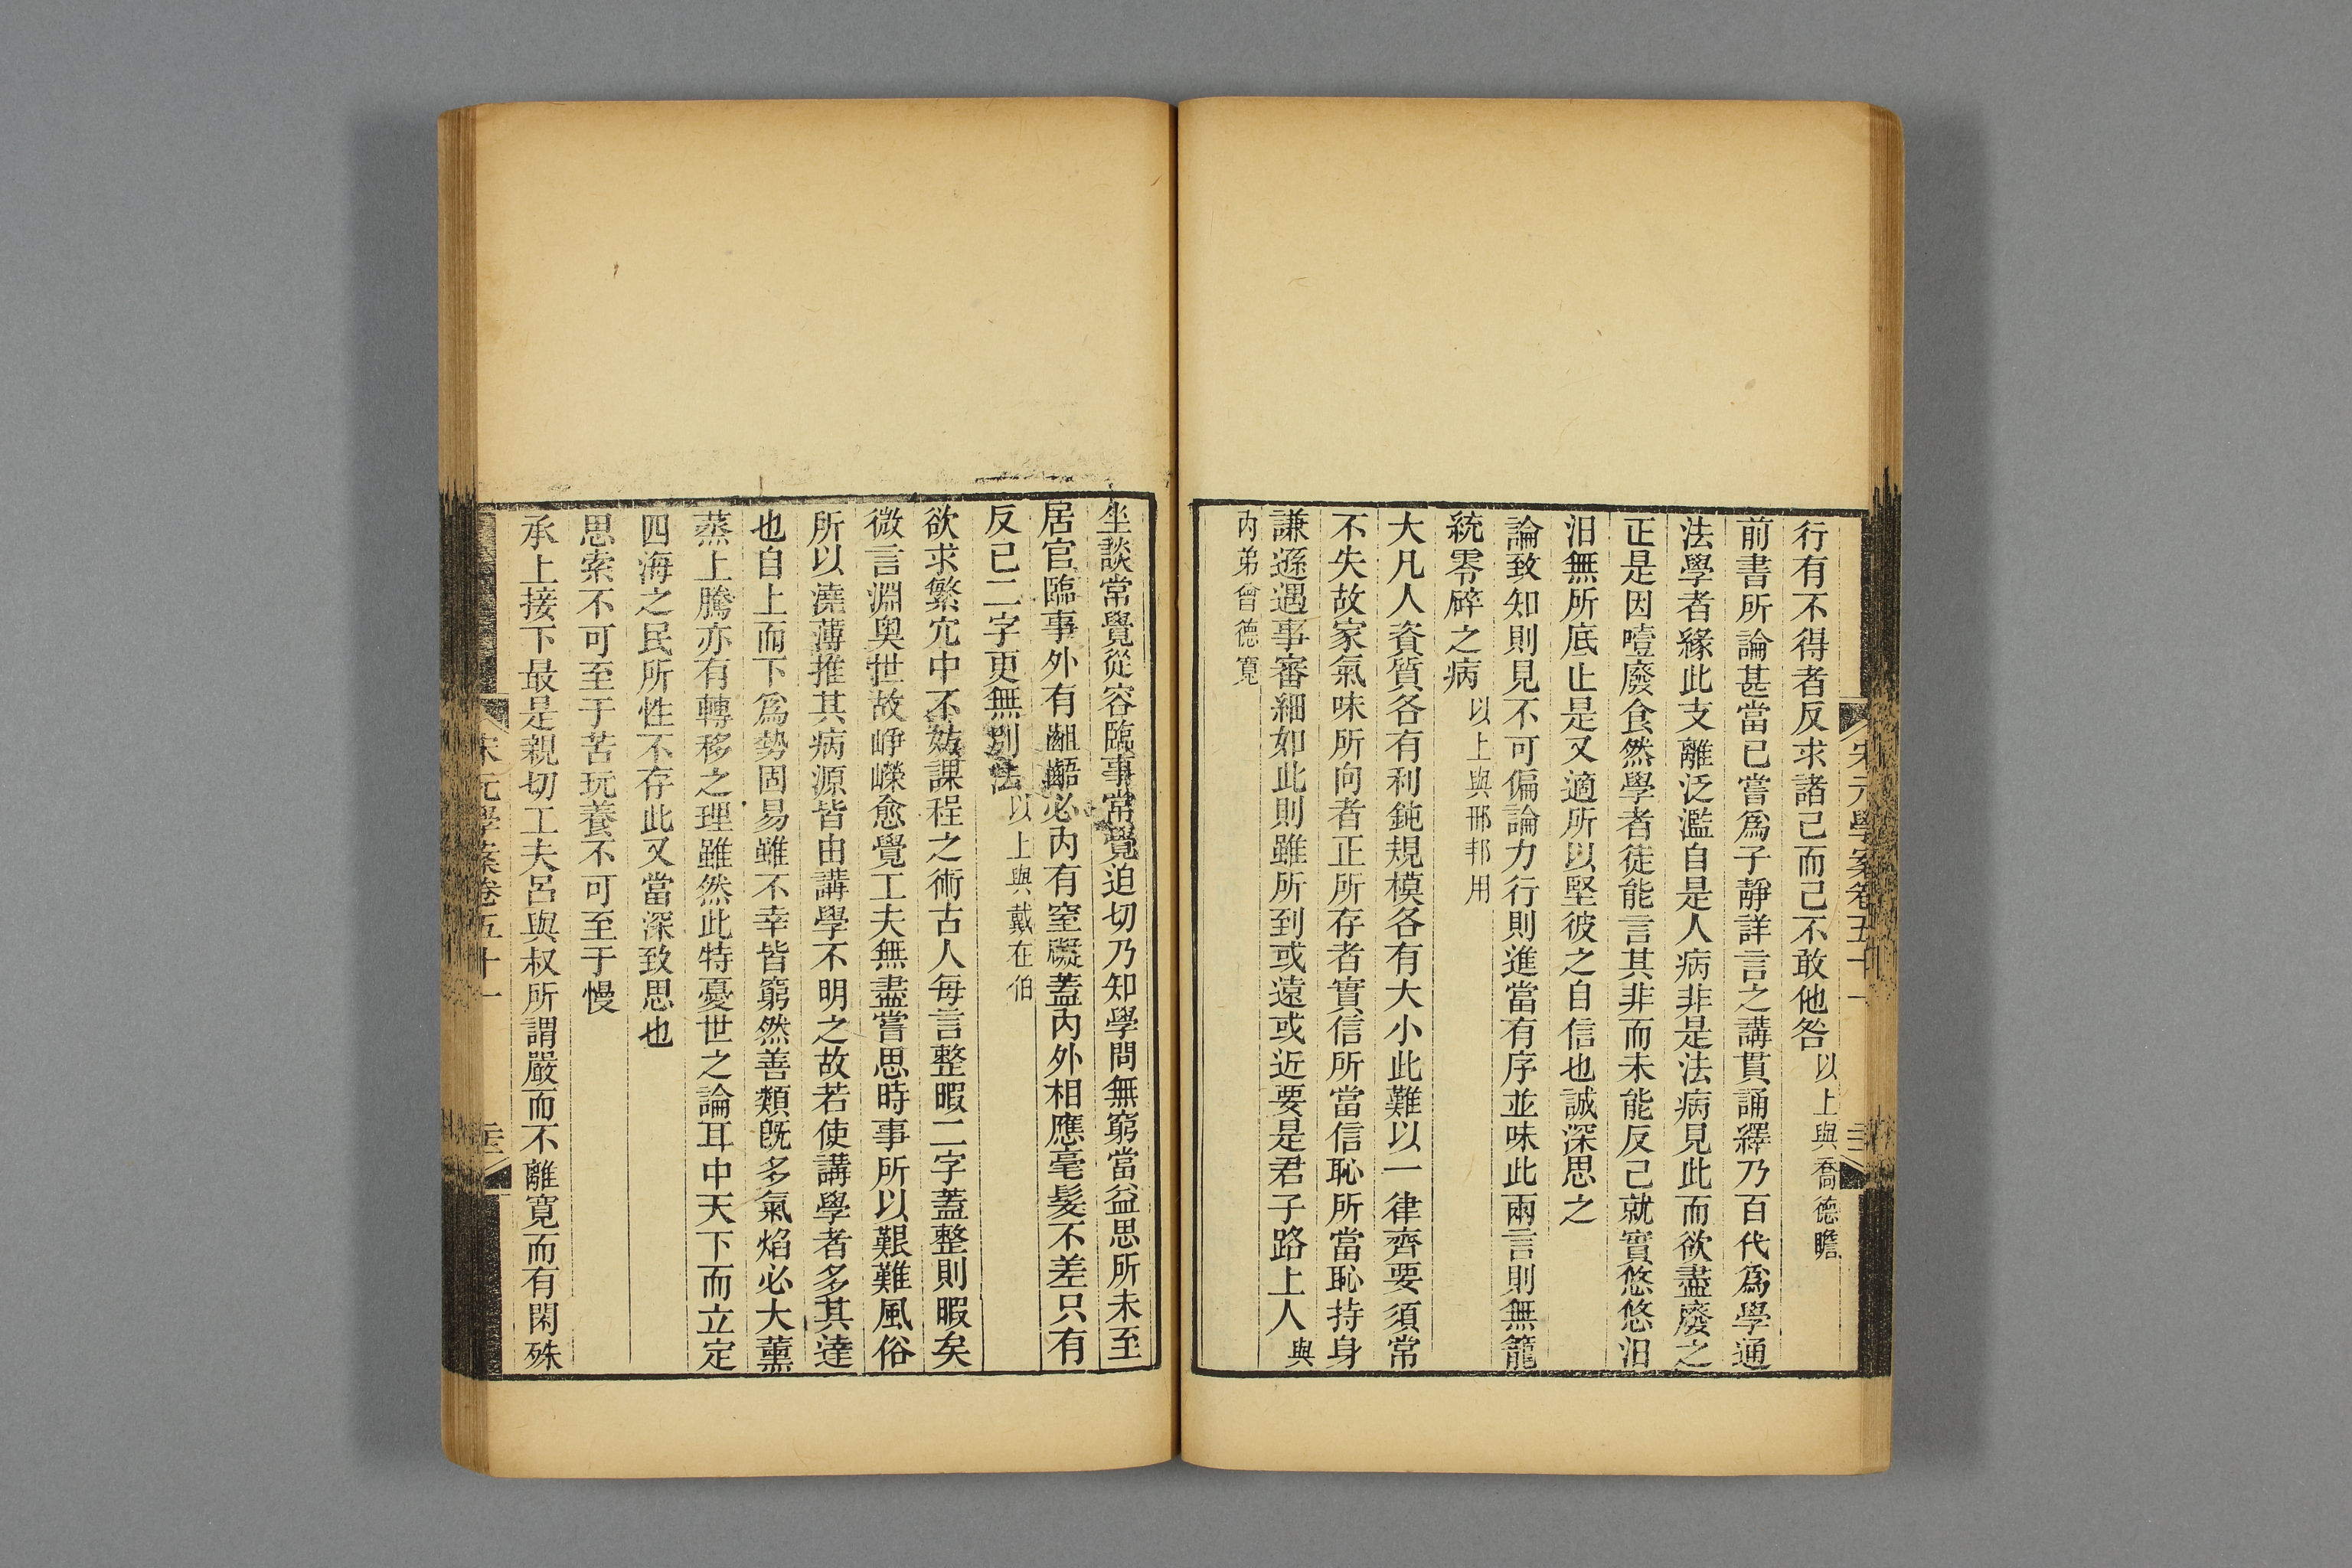 宋元學案卷五十一
行有不得者反求諸己而己不敢他咎以上與喬德瞻
前書所論甚當已嘗爲子靜詳言之講貫誦繹乃百代爲學通
法學者緣此支離泛濫自是人病非是法病見此而欲盡廢之
正是因噎廢食然學者徒能言其非而未能反己就實悠悠汨
汨無所底止是又適所以堅彼之自信也誠深思之
論致知則見不可偏論力行則進當有序並味此兩言則無籠
統零碎之病以上與邢邦用
大凡人資質各有利鈍規模各有大小此難以一律齊要須常
不失故家氣味所向者正所存者實信所當信恥所當恥持身
謙遜遇事審細如此則雖所到或遠或近要是君子路上人與
內弟曾德寬
坐談常覺從容臨事常覺迫切乃知學問無窮當益思所未至
居官臨事外有齟齬必內有窒礙蓋內外相應毫髮不差只有
反己二字更無別法以上與戴在伯
欲求繁冗中不妨課程之術古人每言整暇二字蓋整則暇矣
微言淵奧世故崢嶸愈覺工夫無盡嘗思時事所以艱難風俗
所以澆薄推其病源皆由講學不明之故若使講學者多其達
也自上而下爲勢固易雖不幸皆窮然善類旣多氣焰必大薰
蒸上騰亦有轉移之理雖然此特憂世之論耳中天下而立定
四海之民所性不存此又當深致思也
思索不可至于苦玩養不可至于慢
承上接下最是親切工夫呂與叔所謂嚴而不離寬而有閑殊
宋元學案卷五十一